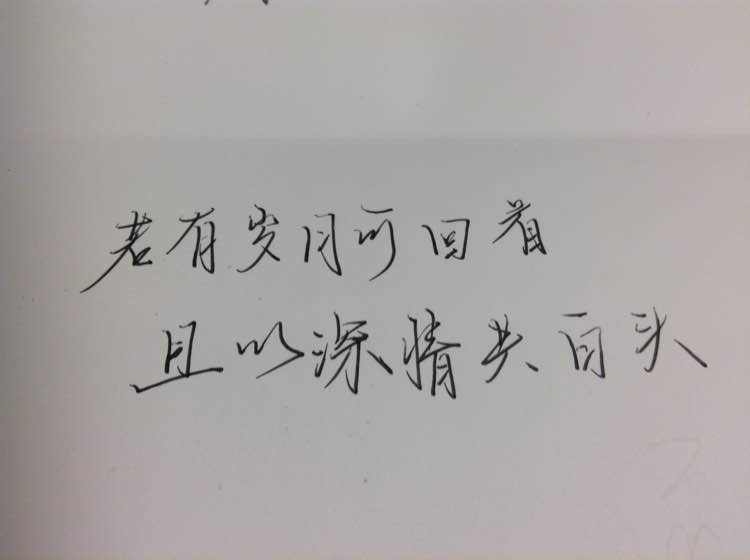 若有岁月可回首
且以深情共白头